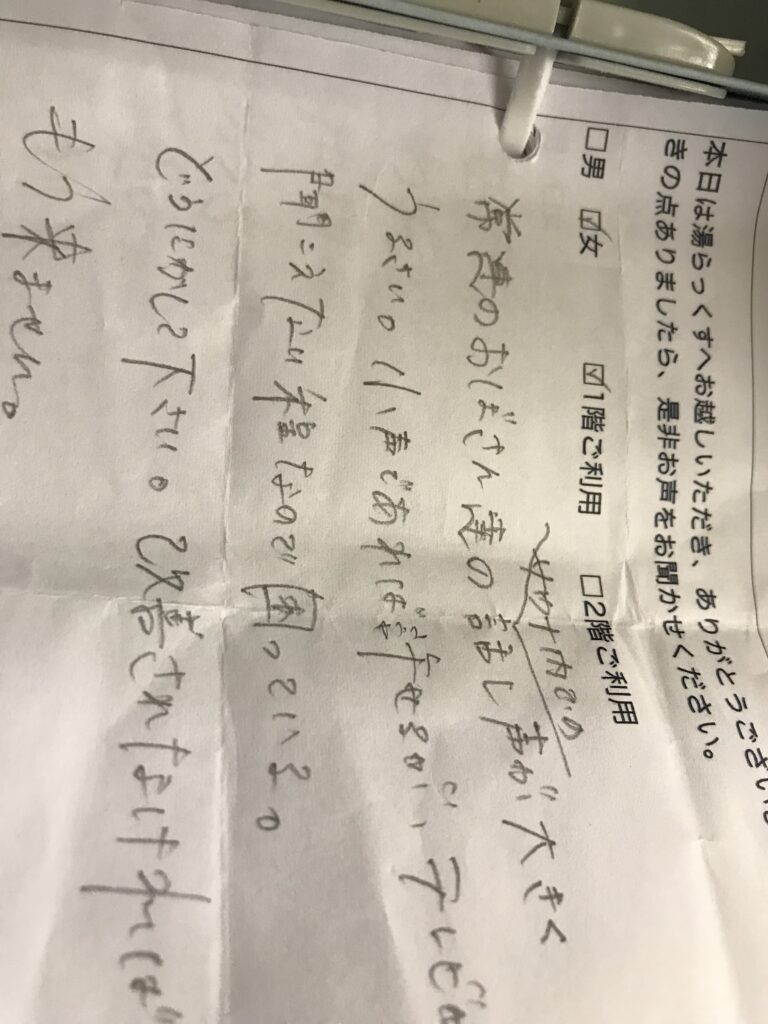 本日は湯らっくすへお越しいただき、ありがとうござい
きの点ありましたら、是非お声をお聞かせください。
□男 ☑女 ☑1階ご利用 □2階ご利用
サウナ内での
常連のおばさん達の話し声が大きく
うるさい。小声であれば許せるが、テレビが
聞こえない程なので困っている。
どうにかして下さい。改善されなければ
もう来ません。